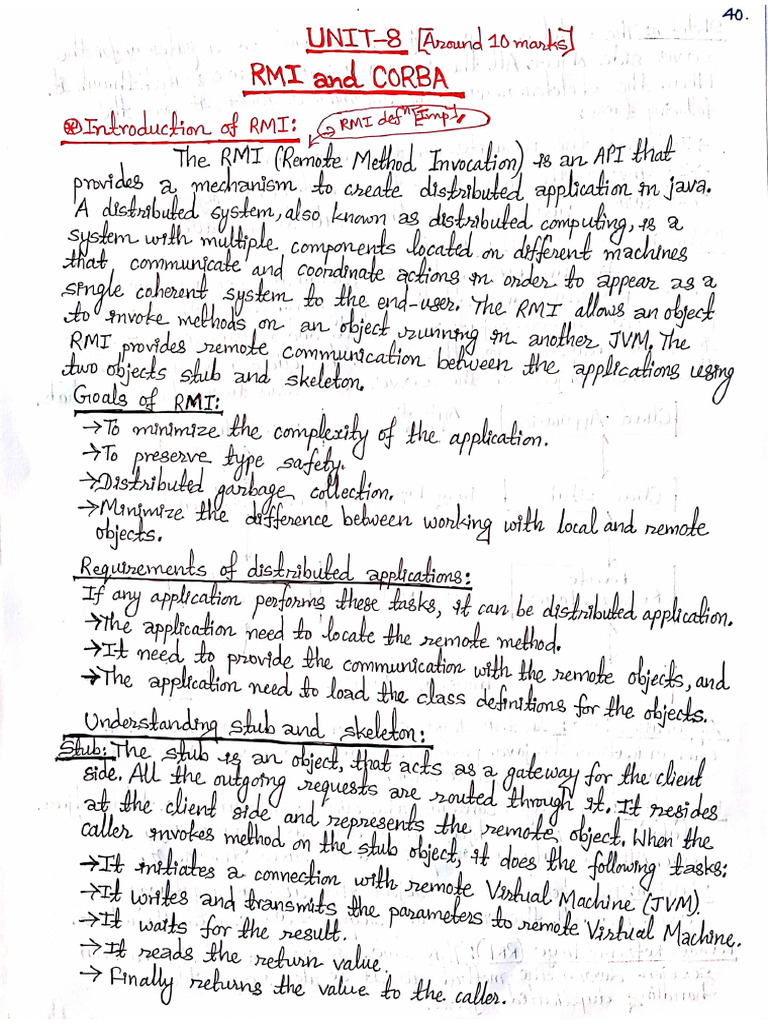 40.
UNIT-8 [Around 10 marks]
RMI and CORBA
⊛ Introduction of RMI: → RMI defⁿ [Imp].
The RMI (Remote Method Invocation) is an API that
provides a mechanism to create distributed application in java.
A distributed system, also known as distributed computing, is a
system with multiple components located on different machines
that communicate and coordinate actions in order to appear as a
single coherent system to the end-user. The RMI allows an object
to invoke methods on an object running in another JVM. The
RMI provides remote communication between the applications using
two objects stub and skeleton.
Goals of RMI:
→ To minimize the complexity of the application.
→ To preserve type safety.
→ Distributed garbage collection.
→ Minimize the difference between working with local and remote
objects.
Requirements of distributed applications:
If any application performs these tasks, it can be distributed application.
→ The application need to locate the remote method.
→ It need to provide the communication with the remote objects, and
→ The application need to load the class definitions for the objects.
Understanding stub and skeleton:
Stub: The stub is an object, that acts as a gateway for the client
side. All the outgoing requests are routed through it. It resides
at the client side and represents the remote object. When the
caller invokes method on the stub object, it does the following tasks:
→ It initiates a connection with remote Virtual Machine (JVM).
→ It writes and transmits the parameters to remote Virtual Machine.
→ It waits for the result.
→ It reads the return value.
→ Finally returns the value to the caller.